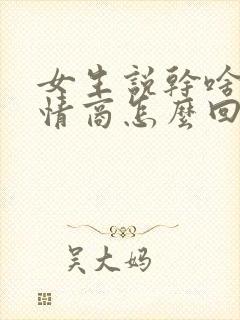 女生説幹啥
情商怎麼回
吴大妈